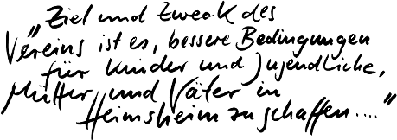 „Ziel und Zweck des
Vereins ist es, bessere Bedingungen
für Kinder und Jugendliche,
Mütter und Väter in
Heimsheim zu schaffen...."